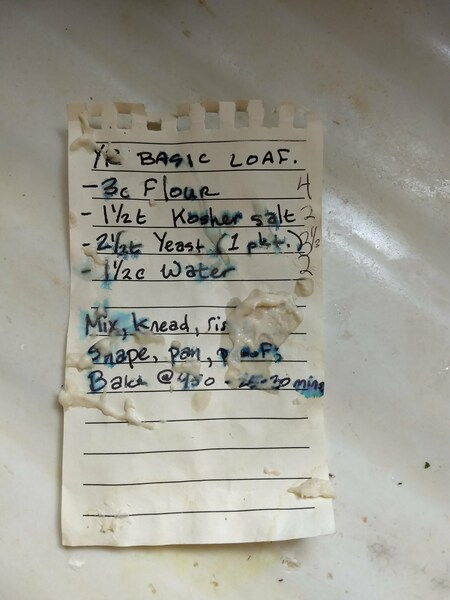 Ye BASIC LOAF.
- 3c Flour 4
- 1½t Kosher salt 2
- 2½t Yeast (1 pkt.) 2½
- 1½c Water 2
Mix, knead, ris
Shape, pan, proof;
Bake @ 450 - 25-30 mins